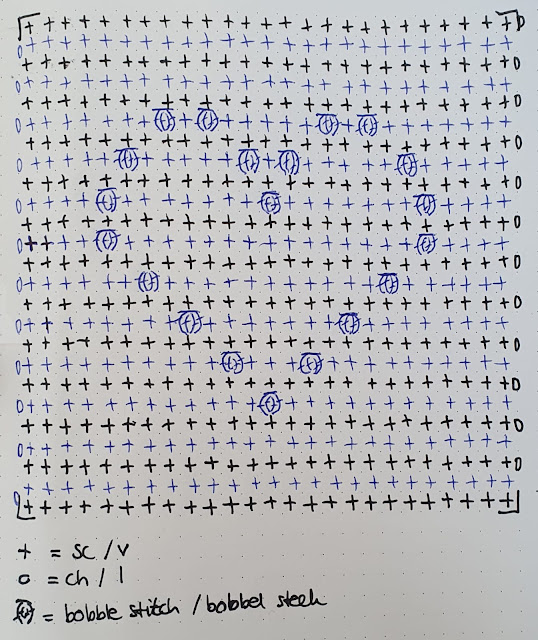 + = sc / v
o = ch / l
= bobble stitch / bobbel steek